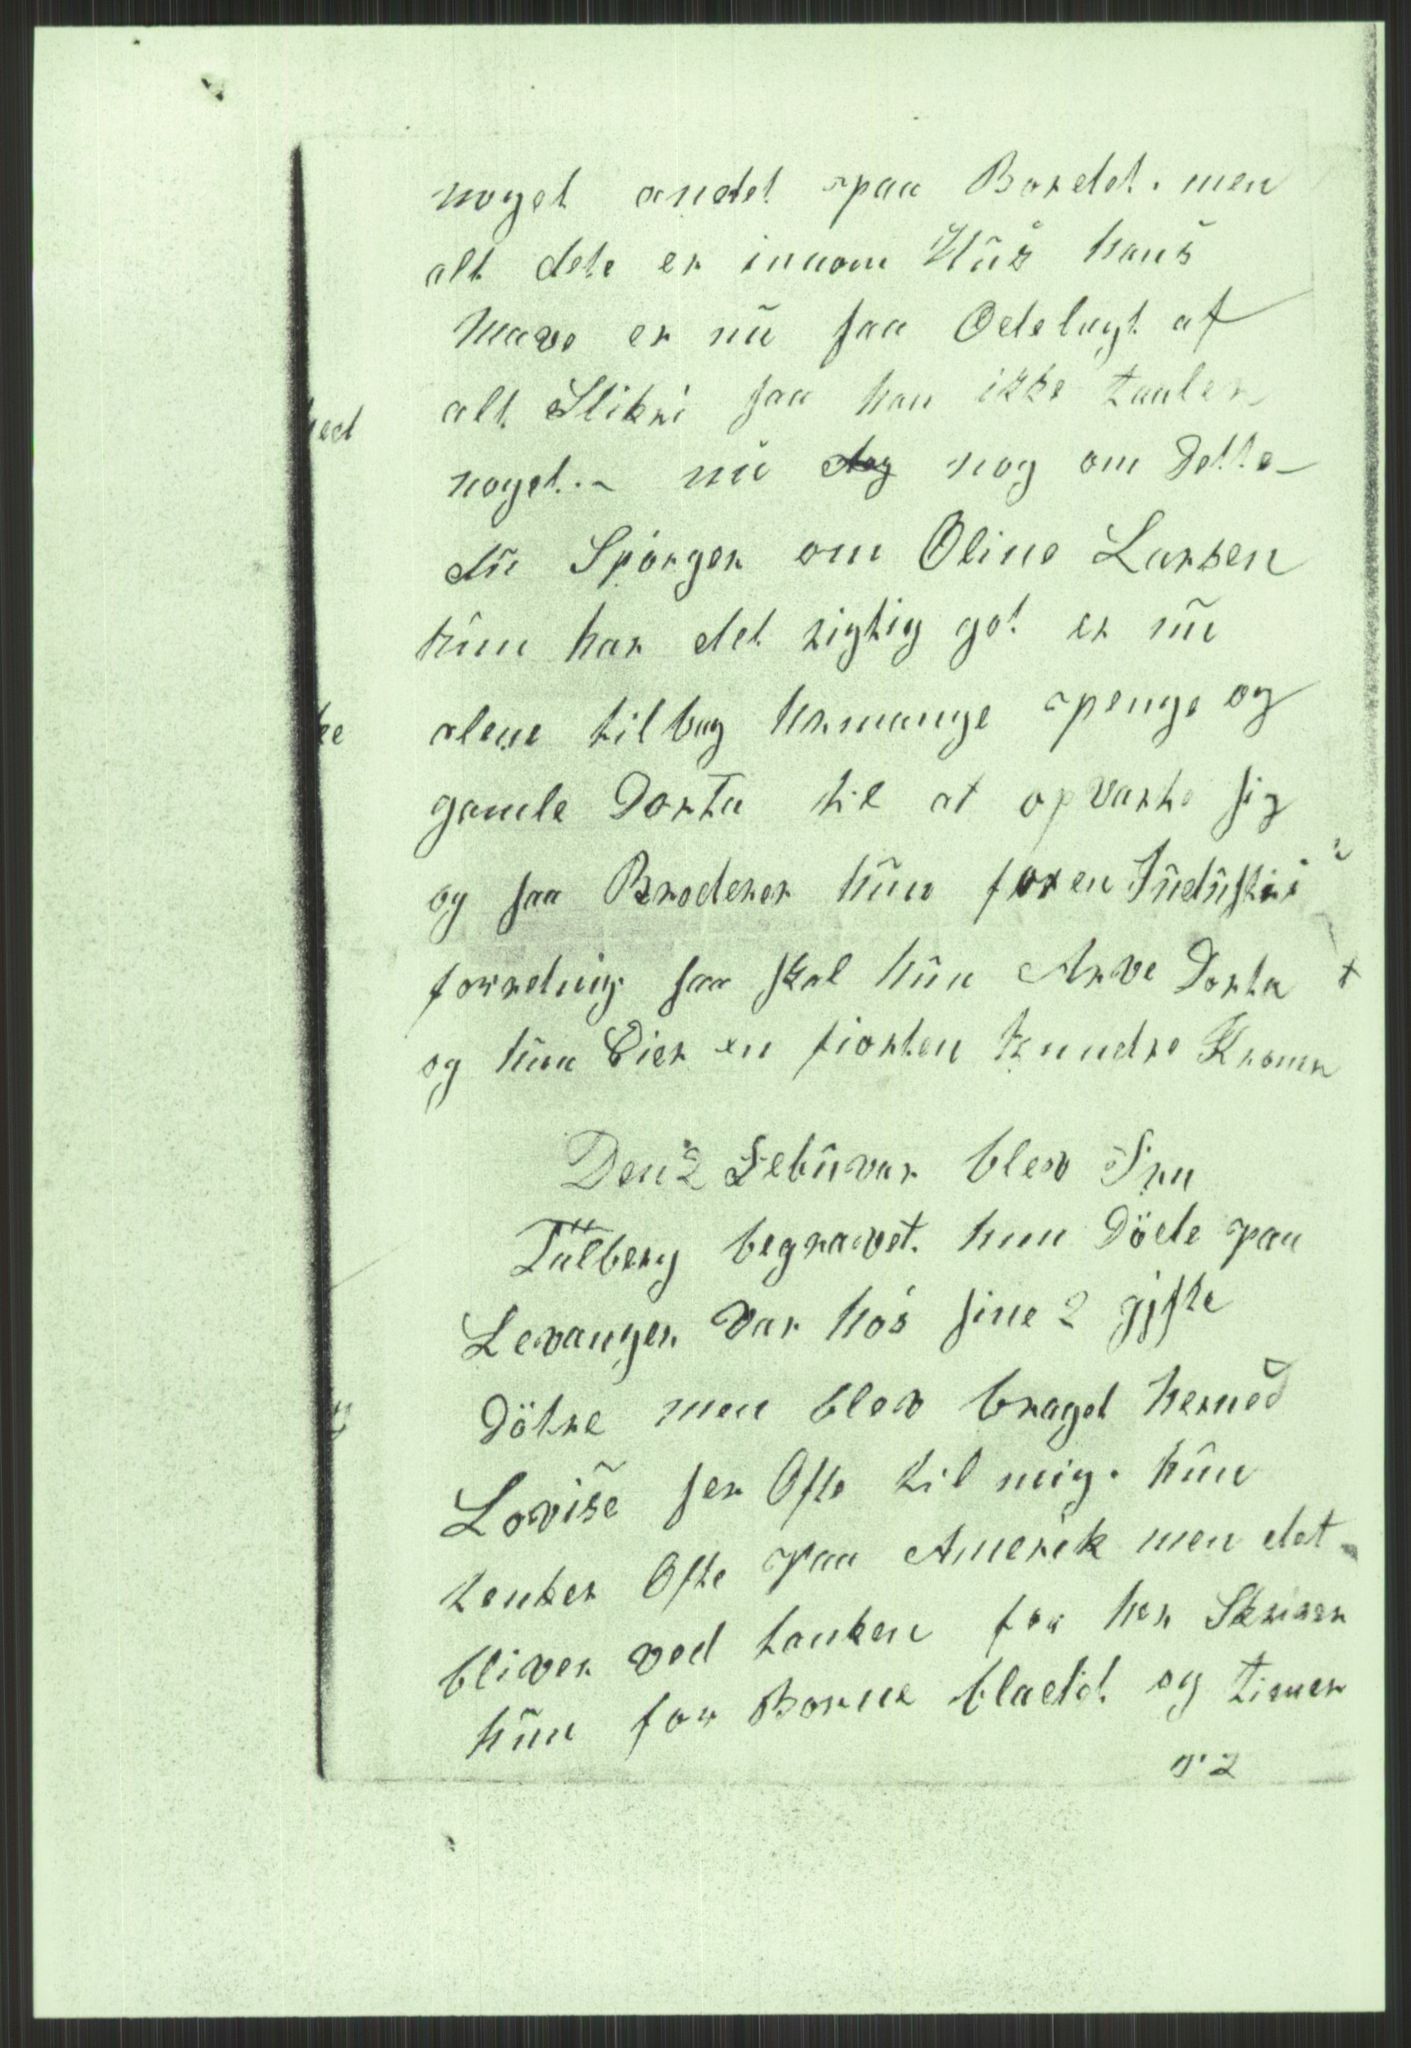 noget andet paa Bordet. men
alt dete er innom Hüs hans
Mave er nü saa Ödelagt af
alt Slikri saa han ikke taaler
noget.- nü nog om Dette-
dü Spörger om Oline Larsen
hün har det rigtig got er nü
alene tilbag mange penge og
gamle Dorta til at opvarte sig
og saa Broderer hün for en Indüstri
forretning saa skal hün Arve Dorta
og hün Eier en fiorten hundre Kroner
Den 2 Febüvar blev Fru
Tülberg begravet. hun Döde paa
Levanger var hos sine 2 gifte
Dötre men blev braget herned
Lovise ser Ofte til mig. hün
tenker Ofte paa Amerik men det
bliver ved tanken for her Skriver
hün for Borne bladet og timer